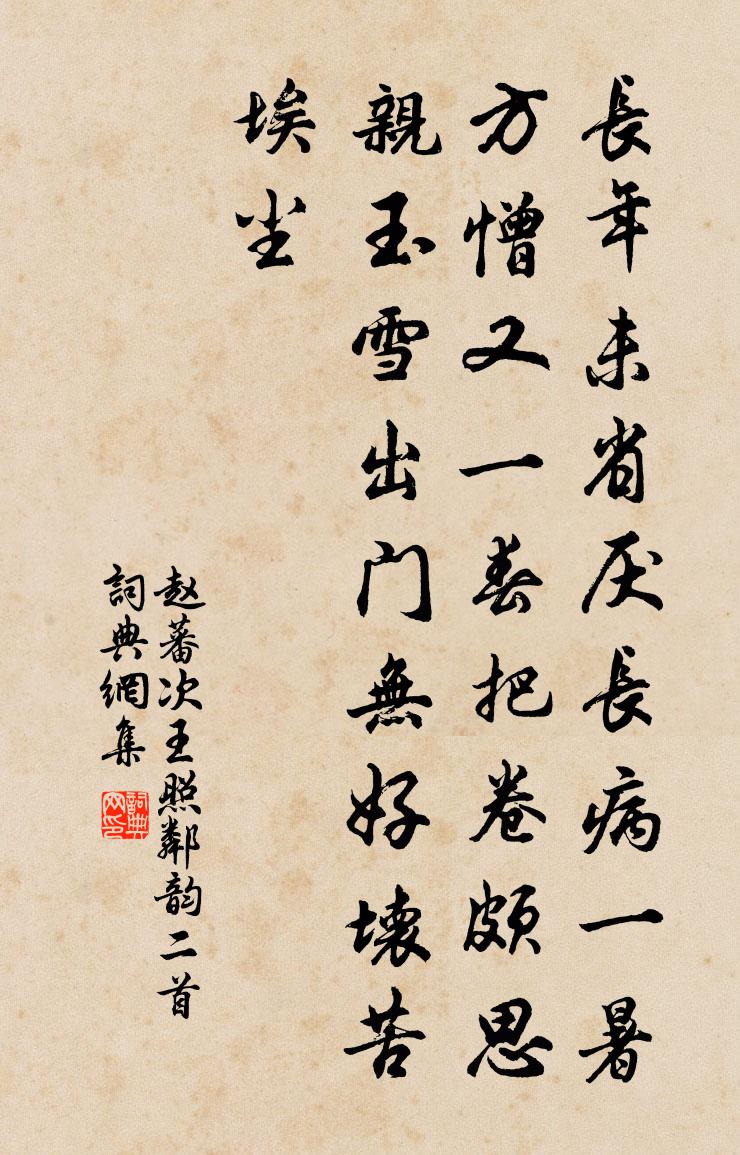 長年未省厌長病一暑
方憎又一春把卷頗思
親玉雪出门無好壞苦
埃尘
赵蕃次王照鄰韵二首
詞典網集
詞典网印